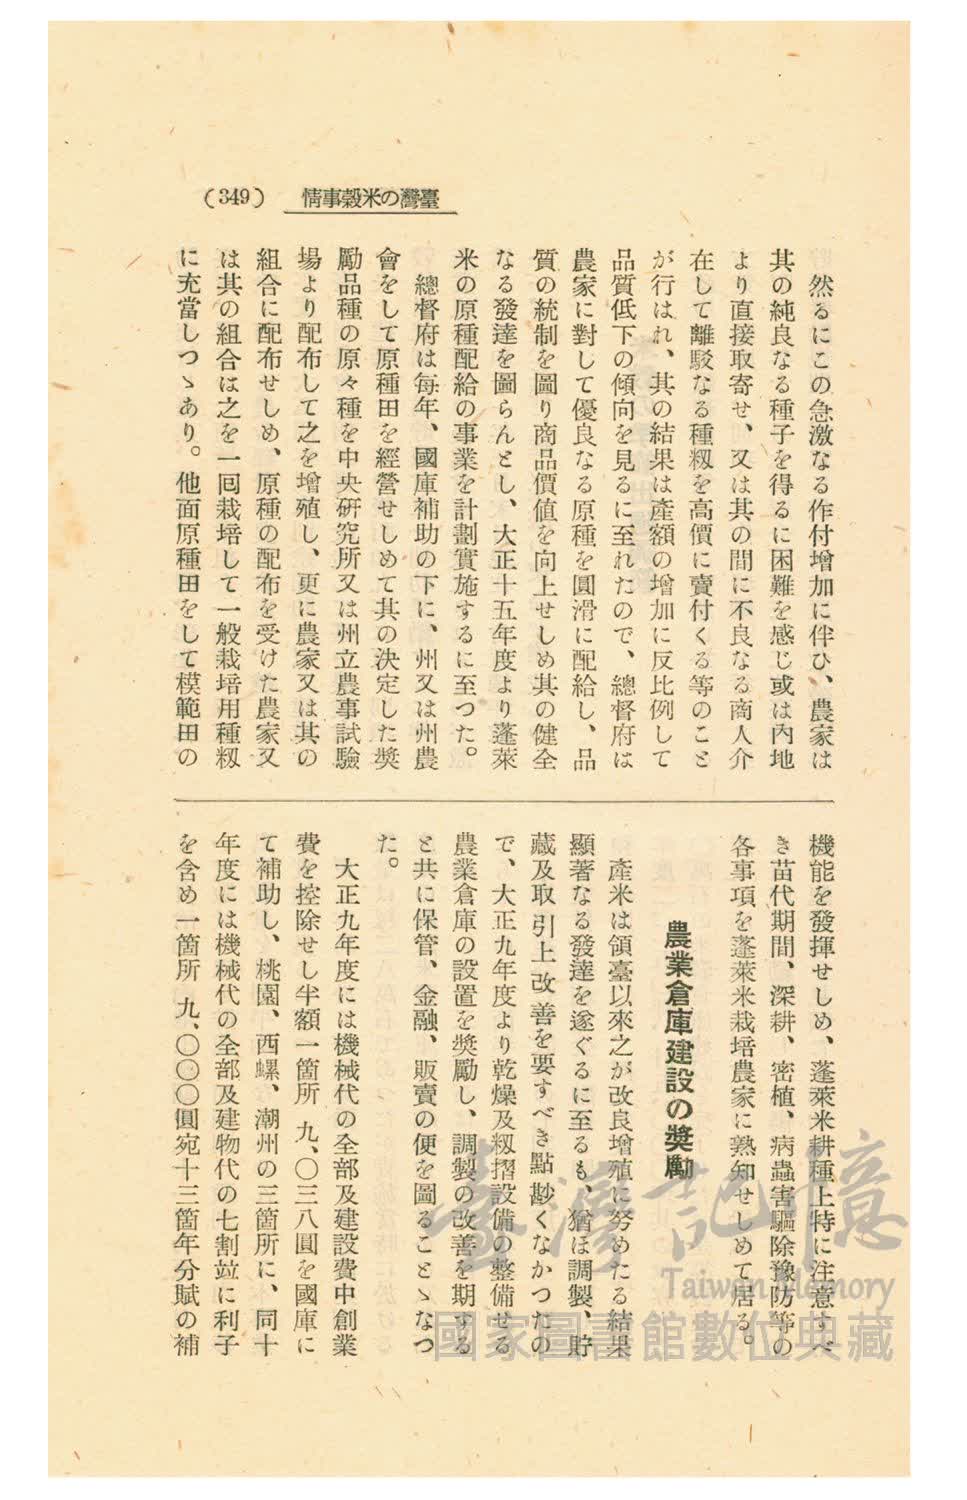 情事穀米の灣臺 (349)
然るにこの急激なる作付增加に伴ひ、農家は
其の純良なる種子を得るに困難を感じ或は內地
より直接取寄せ、又は其の間に不良なる商人介
在して離駁なる種籾を高價に賣付くる等のこと
が行はれ、其の結果は產額の增加に反比例して
品質低下の傾向を見るに至れたので、總督府は
農家に對して優良なる原種を圓滑に配給し、品
質の統制を圖り商品價値を向上せしめ其の健全
なる發達を圖らんとし、大正十五年度より蓬萊
米の原種配給の事業を計劃實施するに至つた。
總督府は每年、國庫補助の下に、州又は州農
會をして原種田を經營せしめて其の決定した獎
勵品種の原々種を中央硏究所又は州立農事試驗
場より配布して之を增殖し、更に農家又は其の
組合に配布せしめ、原種の配布を受けた農家又
は其の組合は之を一回栽培して一般栽培用種籾
に充當しつゝあり。他面原種田をして模範田の
機能を發揮せしめ、蓬萊米耕種上特に注意すべ
き苗代期間、深耕、密植、病蟲害驅除豫防等の
各事項を蓬萊米栽培農家に熟知せしめて居る。
農業倉庫建設の獎勵
產米は領臺以來之が改良增殖に努めたる結果
顯著なる發達を遂ぐるに至るも、猶ほ調製、貯
藏及取引上改善を要すべき點尠くなかつたの
で、大正九年度より乾燥及籾摺設備の整備せる
農業倉庫の設置を獎勵し、調製の改善を期する
と共に保管、金融、販賣の便を圖ることゝなつ
た。
大正九年度には機械代の全部及建設費中創業
費を控除せし半額一箇所 九、〇三八圓を國庫に
て補助し、桃園、西螺、潮州の三箇所に、同十
年度には機械代の全部及建物代の七割竝に利子
を含め一箇所 九、〇〇〇圓宛十三箇年分賦の補
臺灣記憶
Taiwan Memory
國家圖書館數位典藏